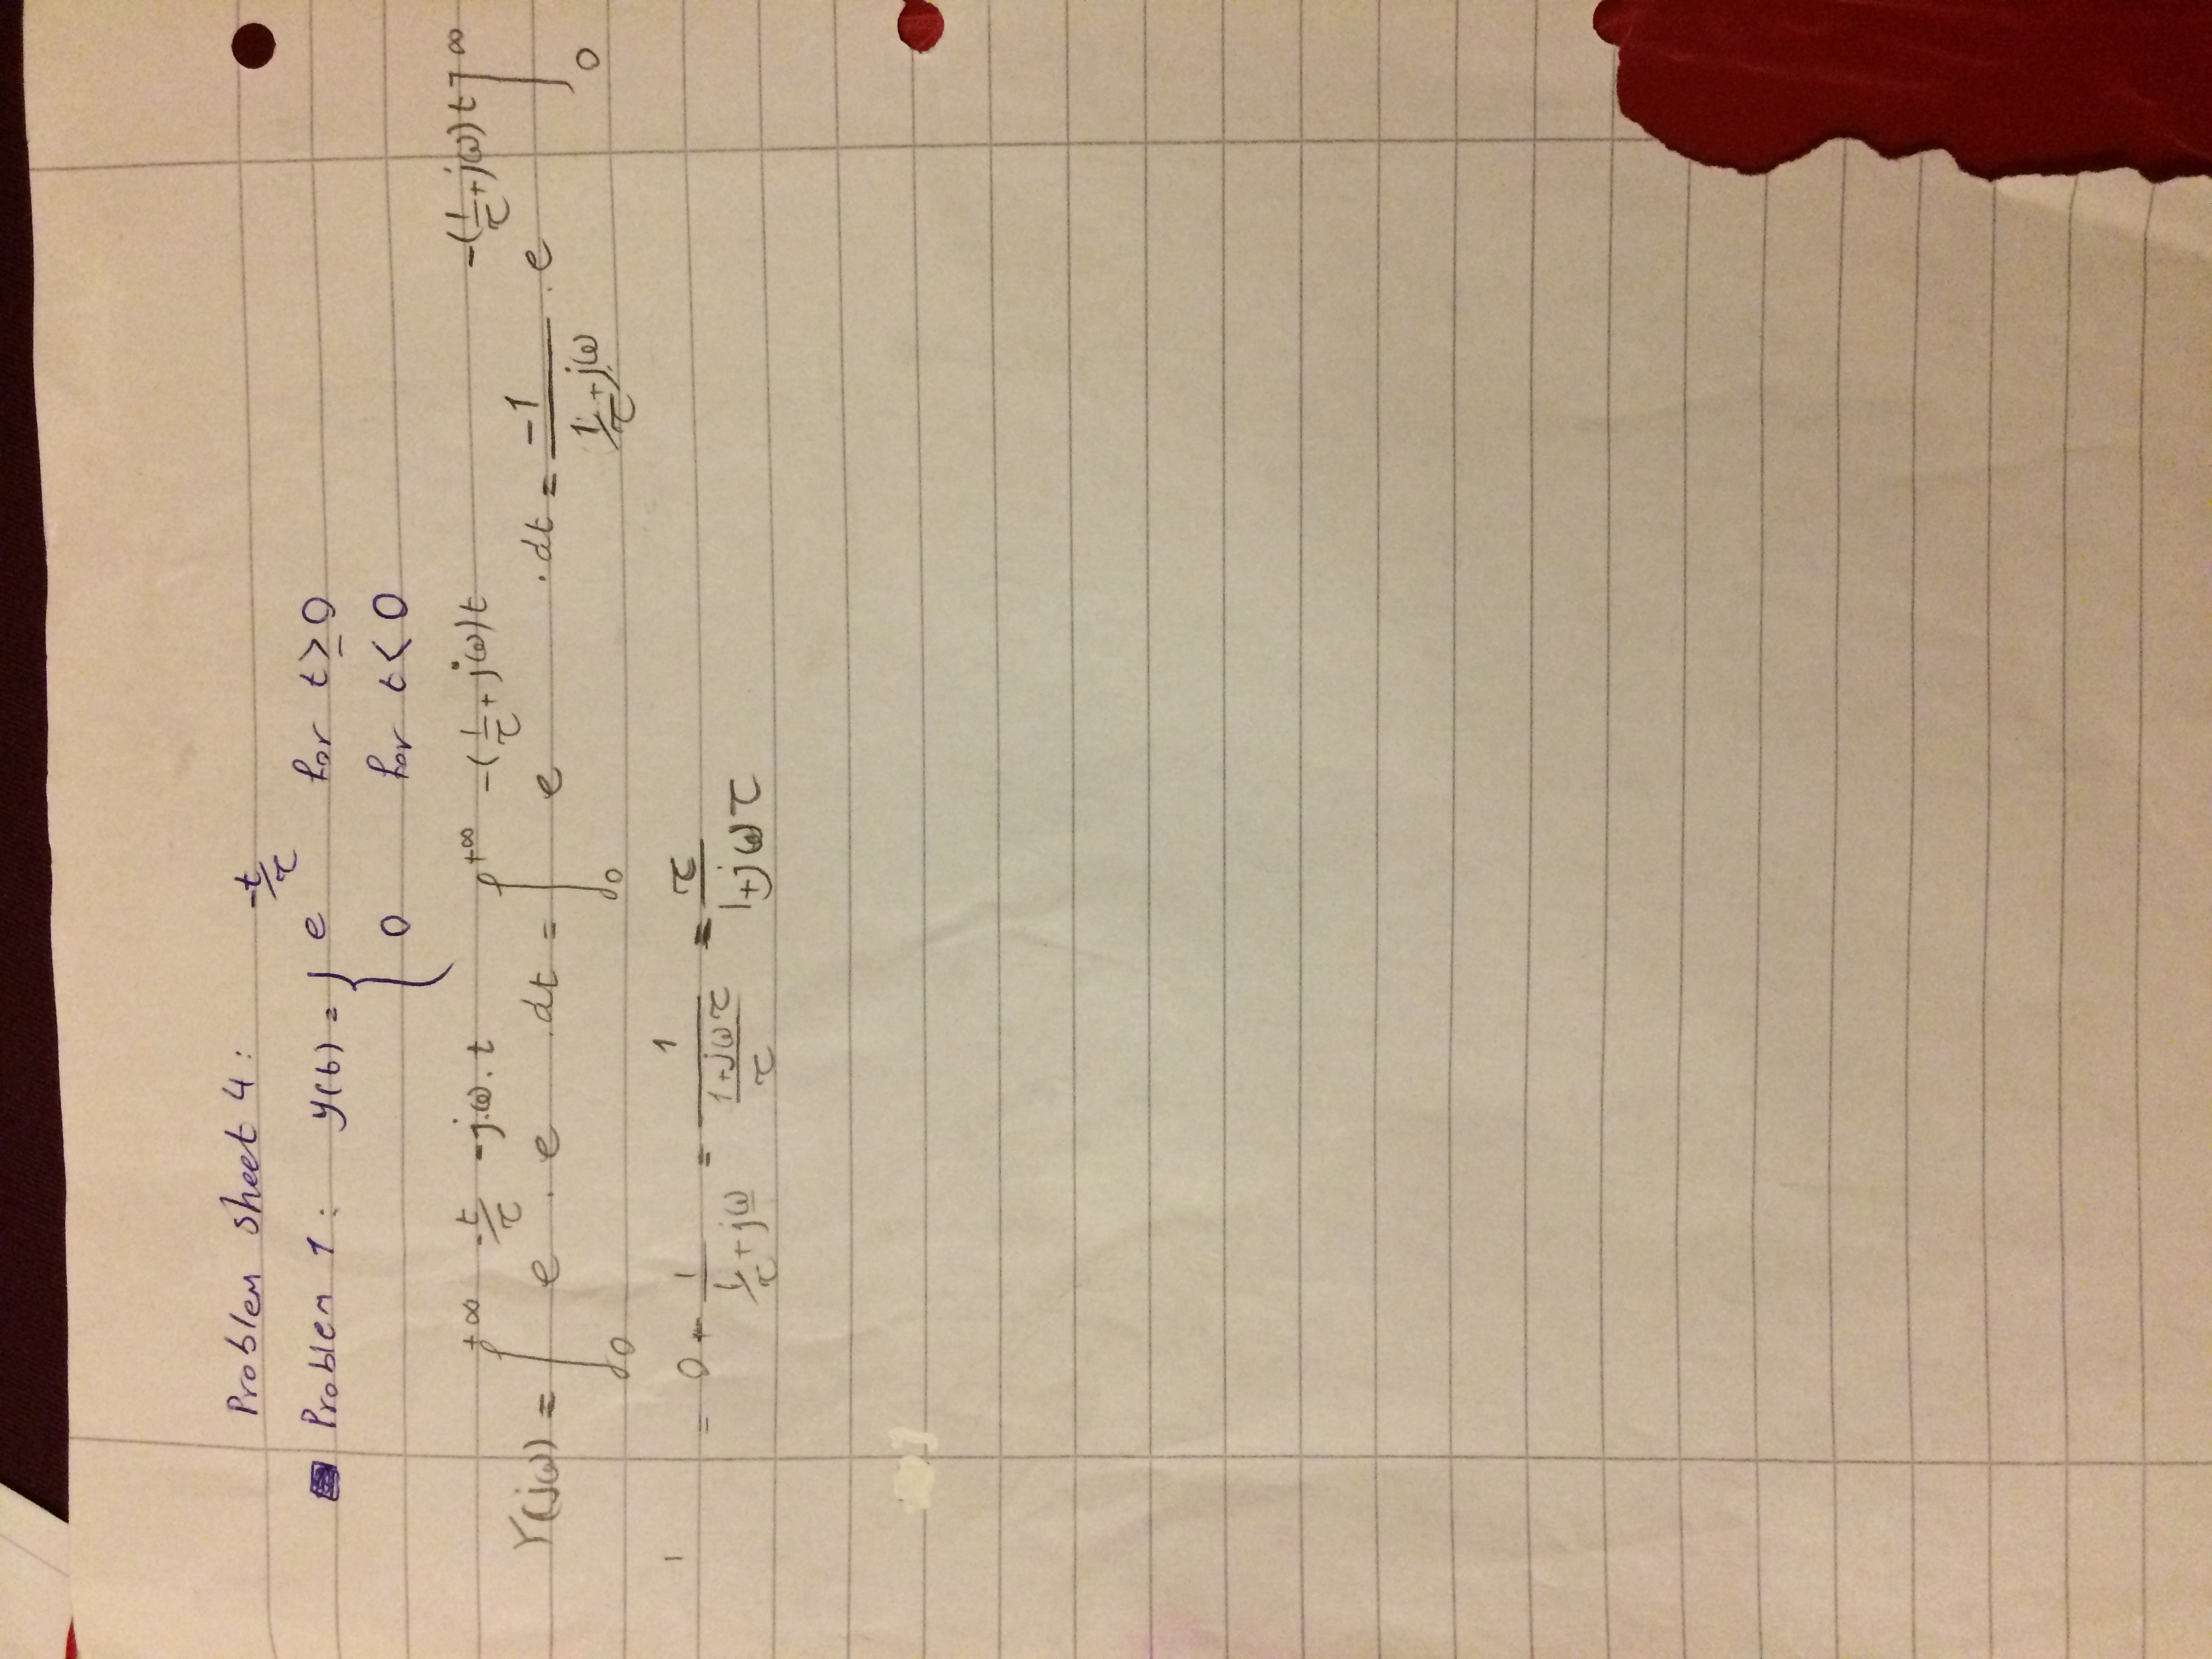 Problem sheet 4:
Problem 1: y(t) = { e^{-t/τ} for t ≥ 0
0 for t < 0
Y(jω) = ∫_0^{+∞} e^{-t/τ} · e^{-j·ω·t} · dt = ∫_0^{+∞} e^{-(1/τ + jω)t} · dt = \frac{-1}{1/τ + jω} · e^{-(1/τ + jω)t} ]_0^∞
= 0 + \frac{1}{1/τ + jω} = \frac{1}{\frac{1+jωτ}{τ}} = \frac{τ}{1+jωτ}